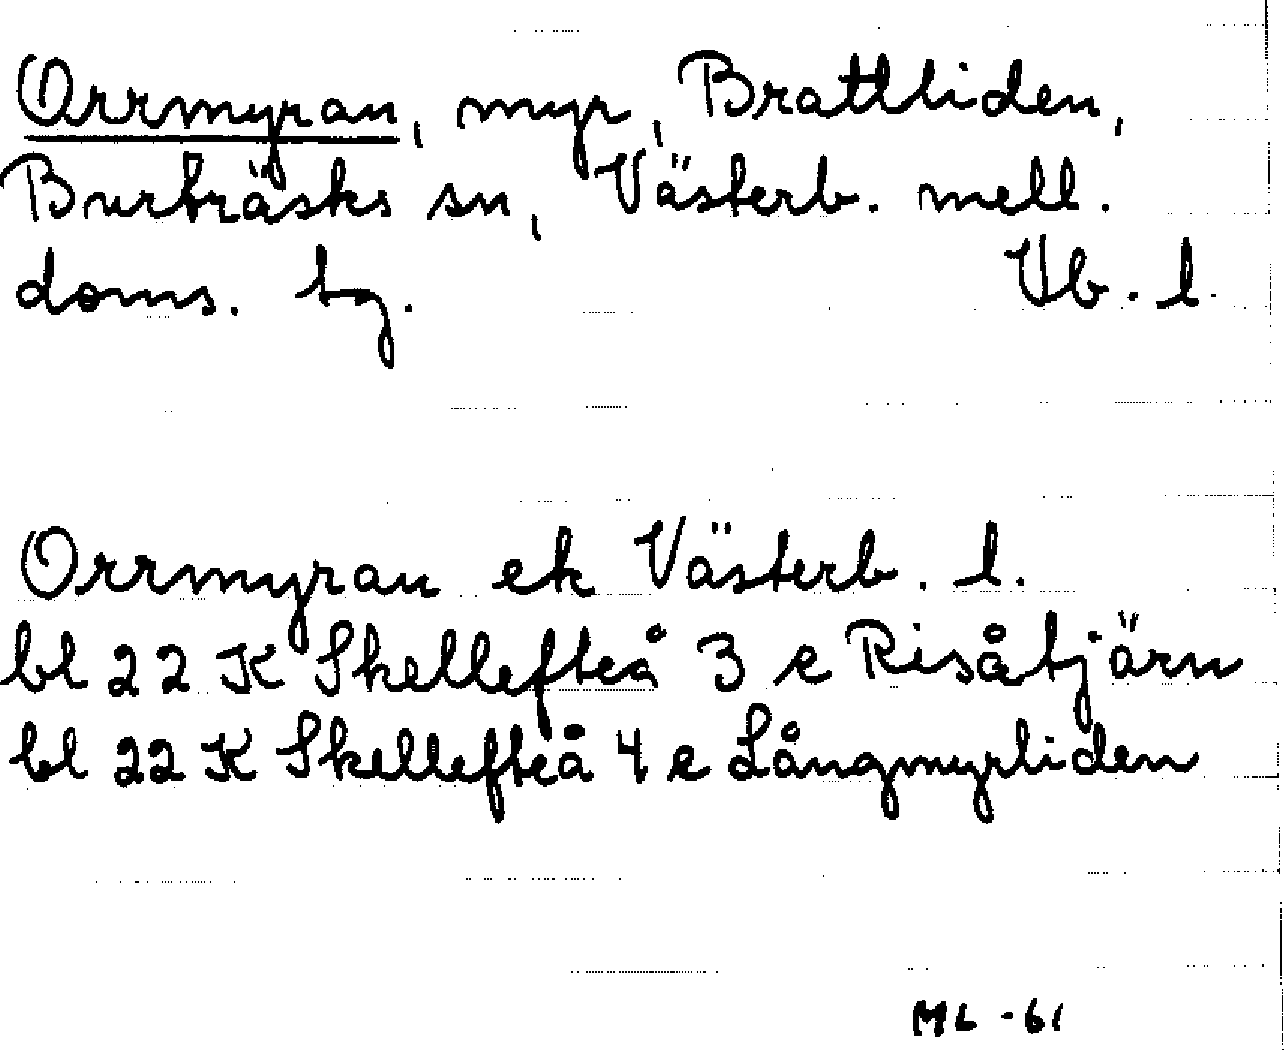 Orrmyran, myr, Brattliden,
Burträsks sn, Västerb. mell.
doms. tg. Vb. l.
Orrmyran ek Västerb. l.
bl 22 K Skellefteå 3 e Risåtjärn
bl 22 K Skellefteå 4 e Långmyrliden
ML -61